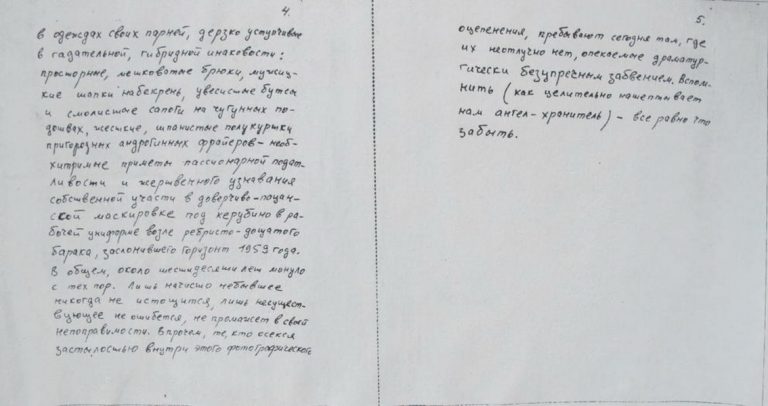 4.
в одеждах своих парней, дерзко уступчивые
в гадательной, гибридной инаковости:
просторные, мешковатые брюки, мужиц-
кие шапки набекрень, увесистые бутсы
и смолистые сапоги на чугунных по-
дошвах, жесткие, шпанистые полукуртки
пригородных андрогинных фрайеров – необ-
хитримые приметы пассионарной подат-
ливости и жертвенного узнавания
собственной участи в доверчиво-пацан-
ской маскировке под керубино в ра-
бочей униформе возле ребристо-дощатого
барака, заслонившего горизонт 1959 года.
В общем, около шестидесяти лет минуло
с тех пор. Лишь начисто небывшее
никогда не истощится, лишь несущест-
вующее не ошибется, не промажет в своей
непоправимости. Впрочем, те, кто осекся
застылостью внутри этого фотографического
5.
оцепенения, пребывают сегодня там, где
их неотлучно нет, опекаемые драматур-
гически безупречным забвением. Вспом-
нить (как целительно нашептывает
нам ангел-хранитель) – все равно что
забыть.